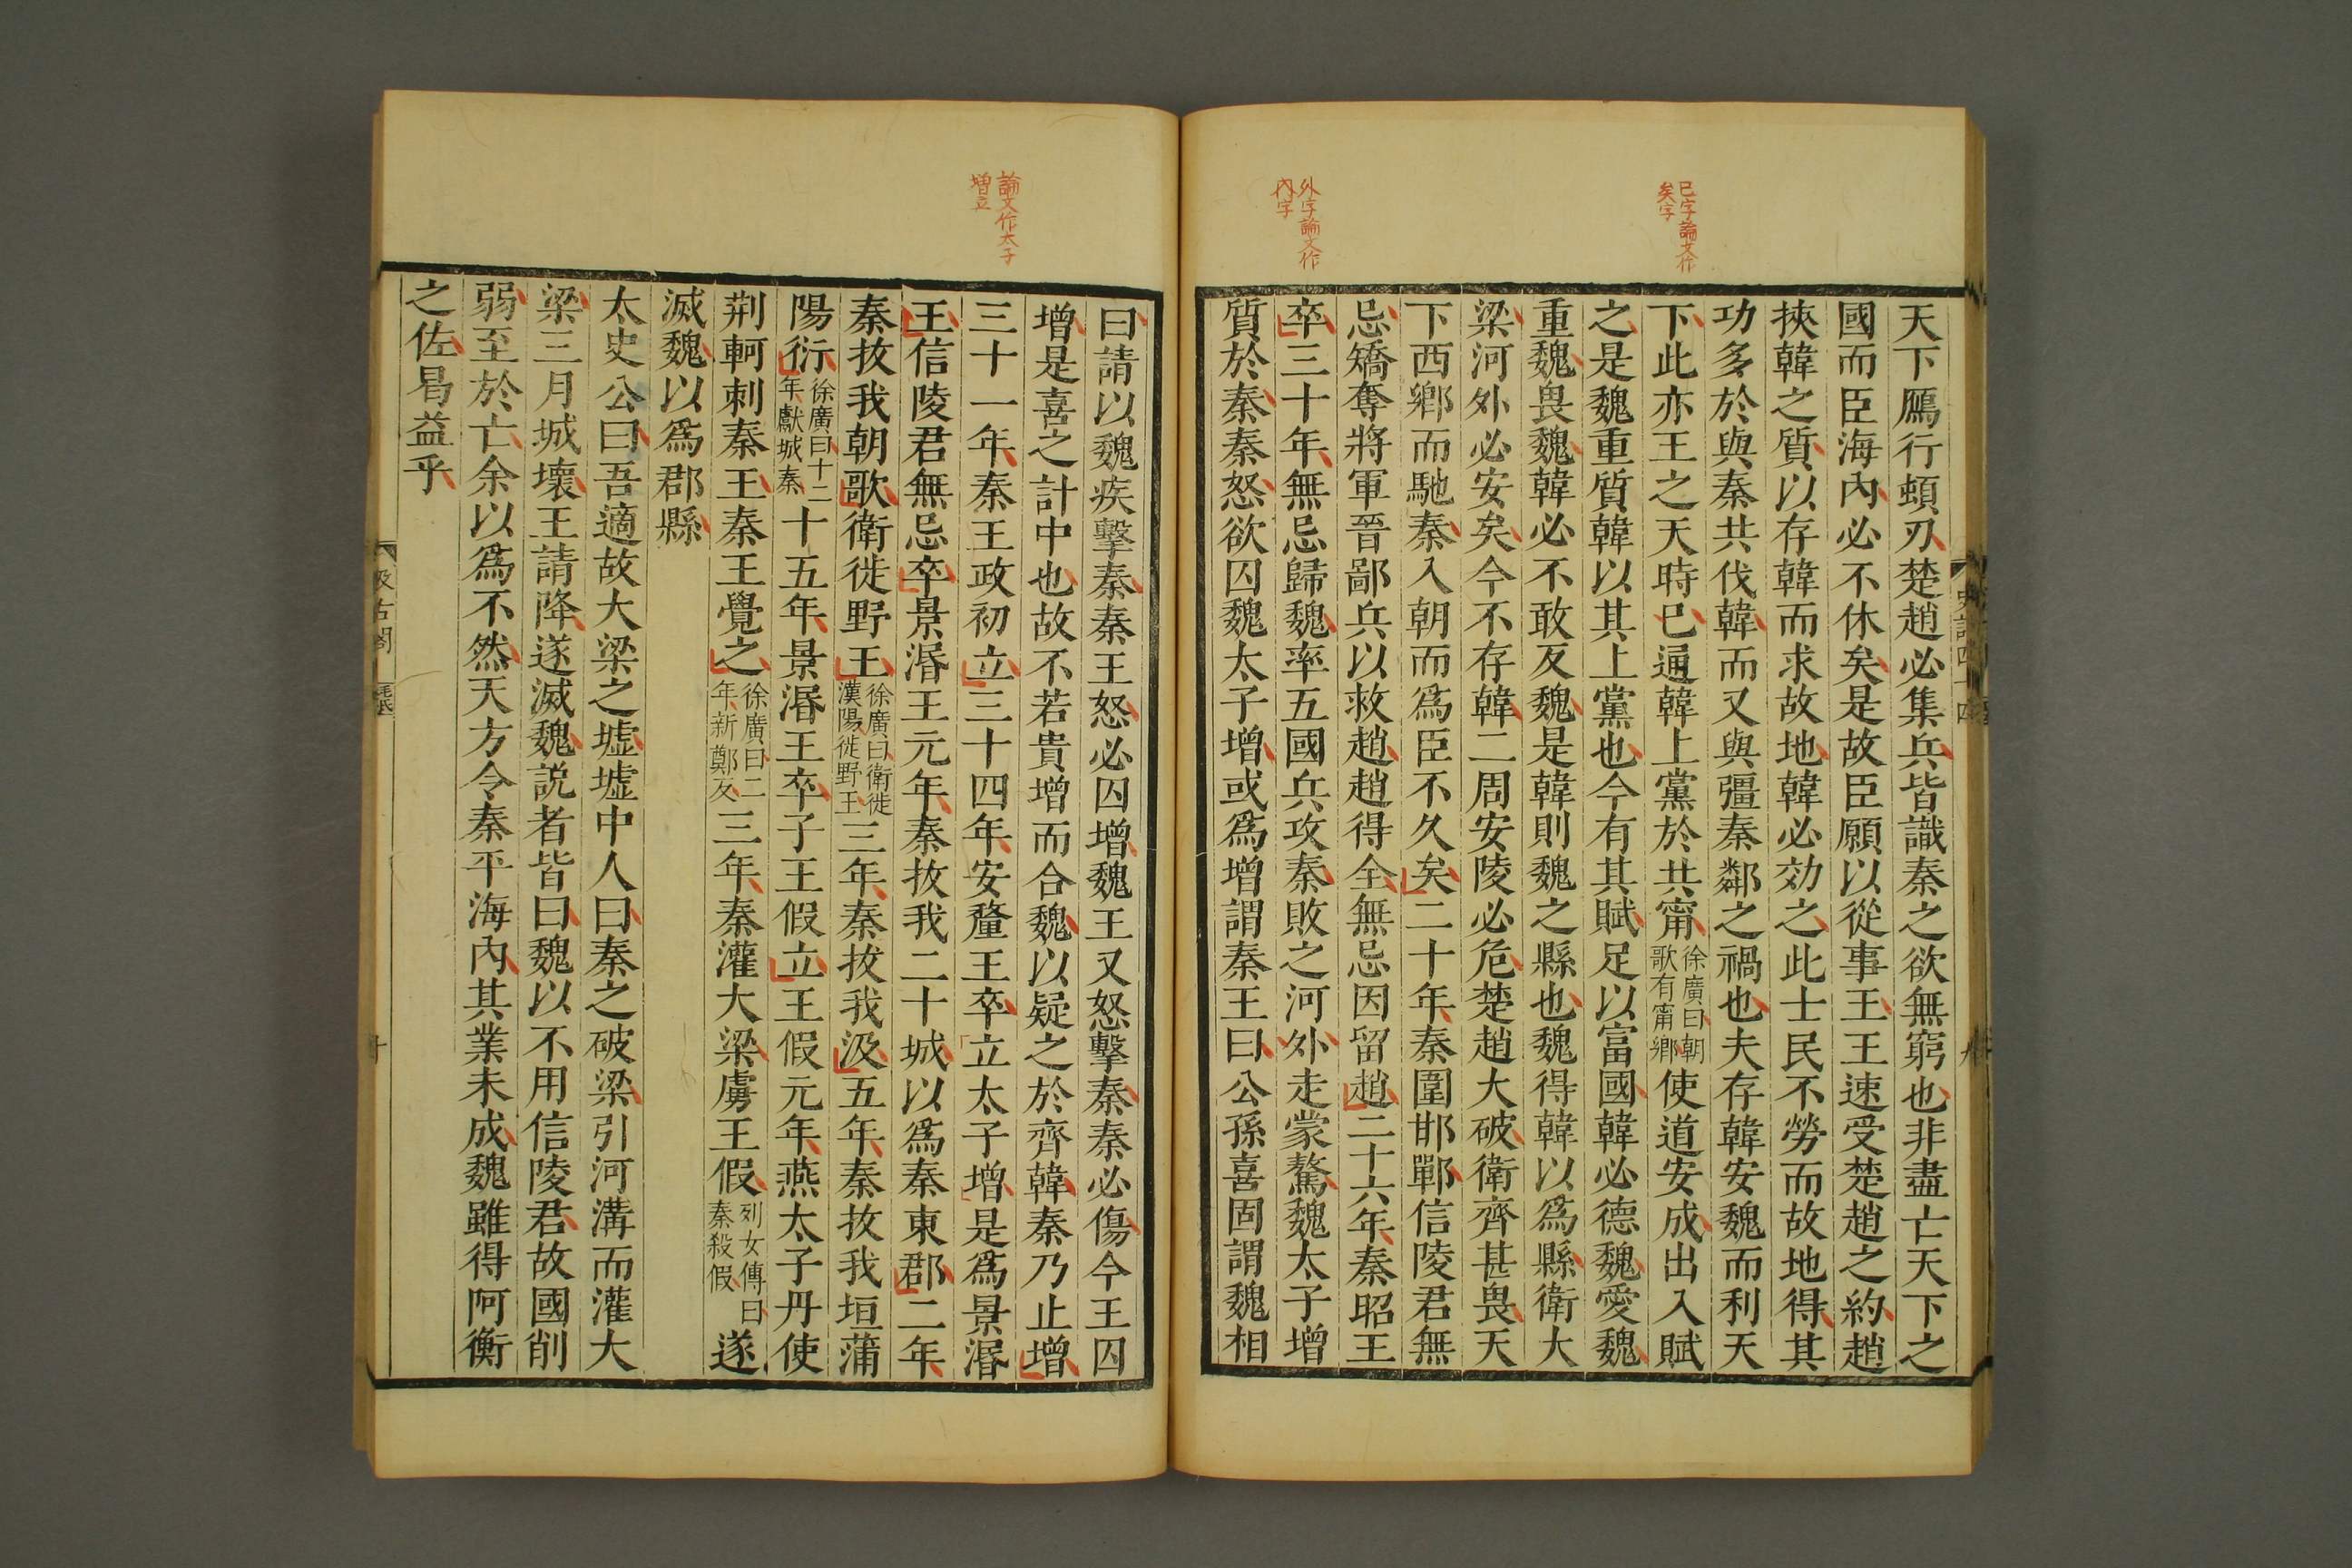 已字論文作
矣字
外字論文作
內字
天下鴈行頓刃楚趙必集兵皆識秦之欲無窮也非盡亡天下之
國而臣海內必不休矣是故臣願以從事王王速受楚趙之約趙
挾韓之質以存韓而求故地韓必効之此士民不勞而故地得其
功多於與秦共伐韓而又與彊秦鄰之禍也夫存韓安魏而利天
下此亦王之天時已通韓上黨於共甯徐廣曰朝歌有甯鄉使道安成出入賦
之是魏重質韓以其上黨也今有其賦足以富國韓必德魏愛魏
重魏畏魏韓必不敢反魏是韓則魏之縣也魏得韓以爲縣衛大
梁河外必安矣今不存韓二周安陵必危楚趙大破衛齊甚畏天
下西鄉而馳秦入朝而爲臣不久矣二十年秦圍邯鄲信陵君無
忌矯奪將軍晉鄙兵以救趙趙得全無忌因留趙二十六年秦昭王
卒三十年無忌歸魏率五國兵攻秦敗之河外走蒙驁魏太子增
質於秦秦怒欲囚魏太子增或爲增謂秦王曰公孫喜固謂魏相
論文作太子
增立
曰請以魏疾擊秦秦王怒必囚增魏王又怒擊秦秦必傷今王囚
增是喜之計中也故不若貴增而合魏以疑之於齊韓秦乃止增
三十一年秦王政初立三十四年安釐王卒立太子增是爲景湣
王信陵君無忌卒景湣王元年秦拔我二十城以爲秦東郡二年
秦拔我朝歌衛徙野王徐廣曰衛徙漢陽徙野王三年秦拔我汲五年秦拔我垣蒲
陽衍徐廣曰十二年獻城秦十五年景湣王卒子王假立王假元年燕太子丹使
荆軻刺秦王秦王覺之徐廣曰二年新鄭反三年秦灌大梁虜王假列女傳曰秦殺假遂
滅魏以爲郡縣
太史公曰吾適故大梁之墟墟中人曰秦之破梁引河溝而灌大
梁三月城壞王請降遂滅魏説者皆曰魏以不用信陵君故國削
弱至於亡余以爲不然天方令秦平海內其業未成魏雖得阿衡
之佐曷益乎
汲古閣
十